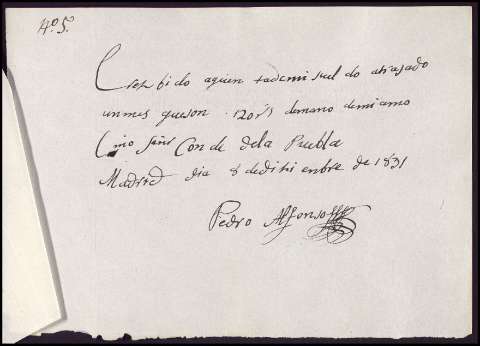 4º. 5º.
E rezibido aquen tademi suel do atrasado
unmes queson 120 rs demano demiamo
Emo Señr Conde dela Puebla
Madrid dia 8 dedizi enbre de 1831
Pedro Alfonso